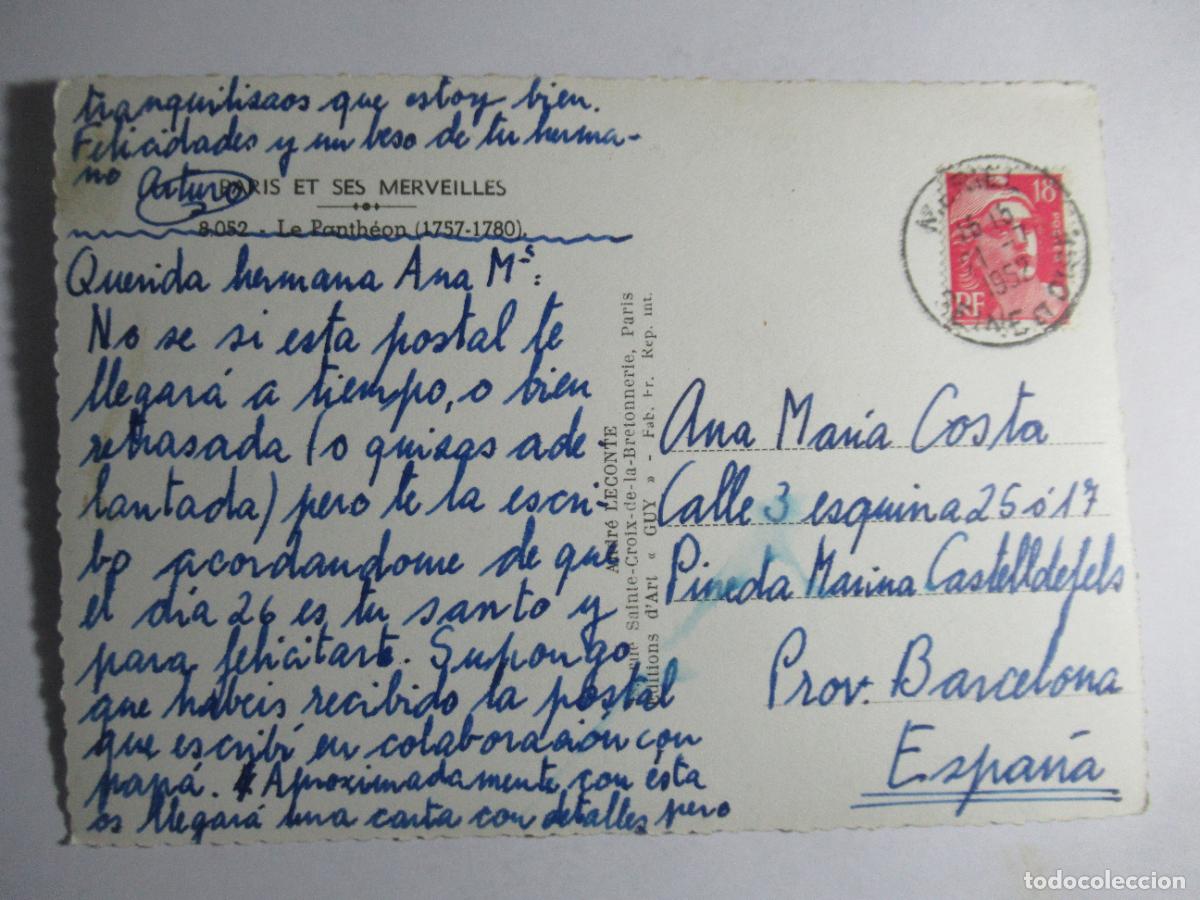 tranquilisaos que estoy bien.
Felicidades y un beso de tu herma-
no Arturo
PARIS ET SES MERVEILLES
8.052 - Le Panthéon (1757-1780).
Querida hermana Ana Mª:
No se si esta postal te
llegará a tiempo, o bien
retrasada (o quizas ade
lantada) pero te la escri-
bo acordandome de que
el dia 26 es tu santo y
para felicitarte. Supongo
que habeis recibido la postal
que escribí en colaboración con
papá. Aproximadamente con ésta
os llegará una carta con detalles pero
André LECONTE
rue Sainte-Croix-de-la-Bretonnerie, Paris
Editions d'Art « GUY » - Fab. Fr. Rep. int.
18
RF
1952
Ana María Costa
Calle 3 esquina 25 ó 17
Pineda Marina Castelldefels
Prov. Barcelona
España
todocoleccion